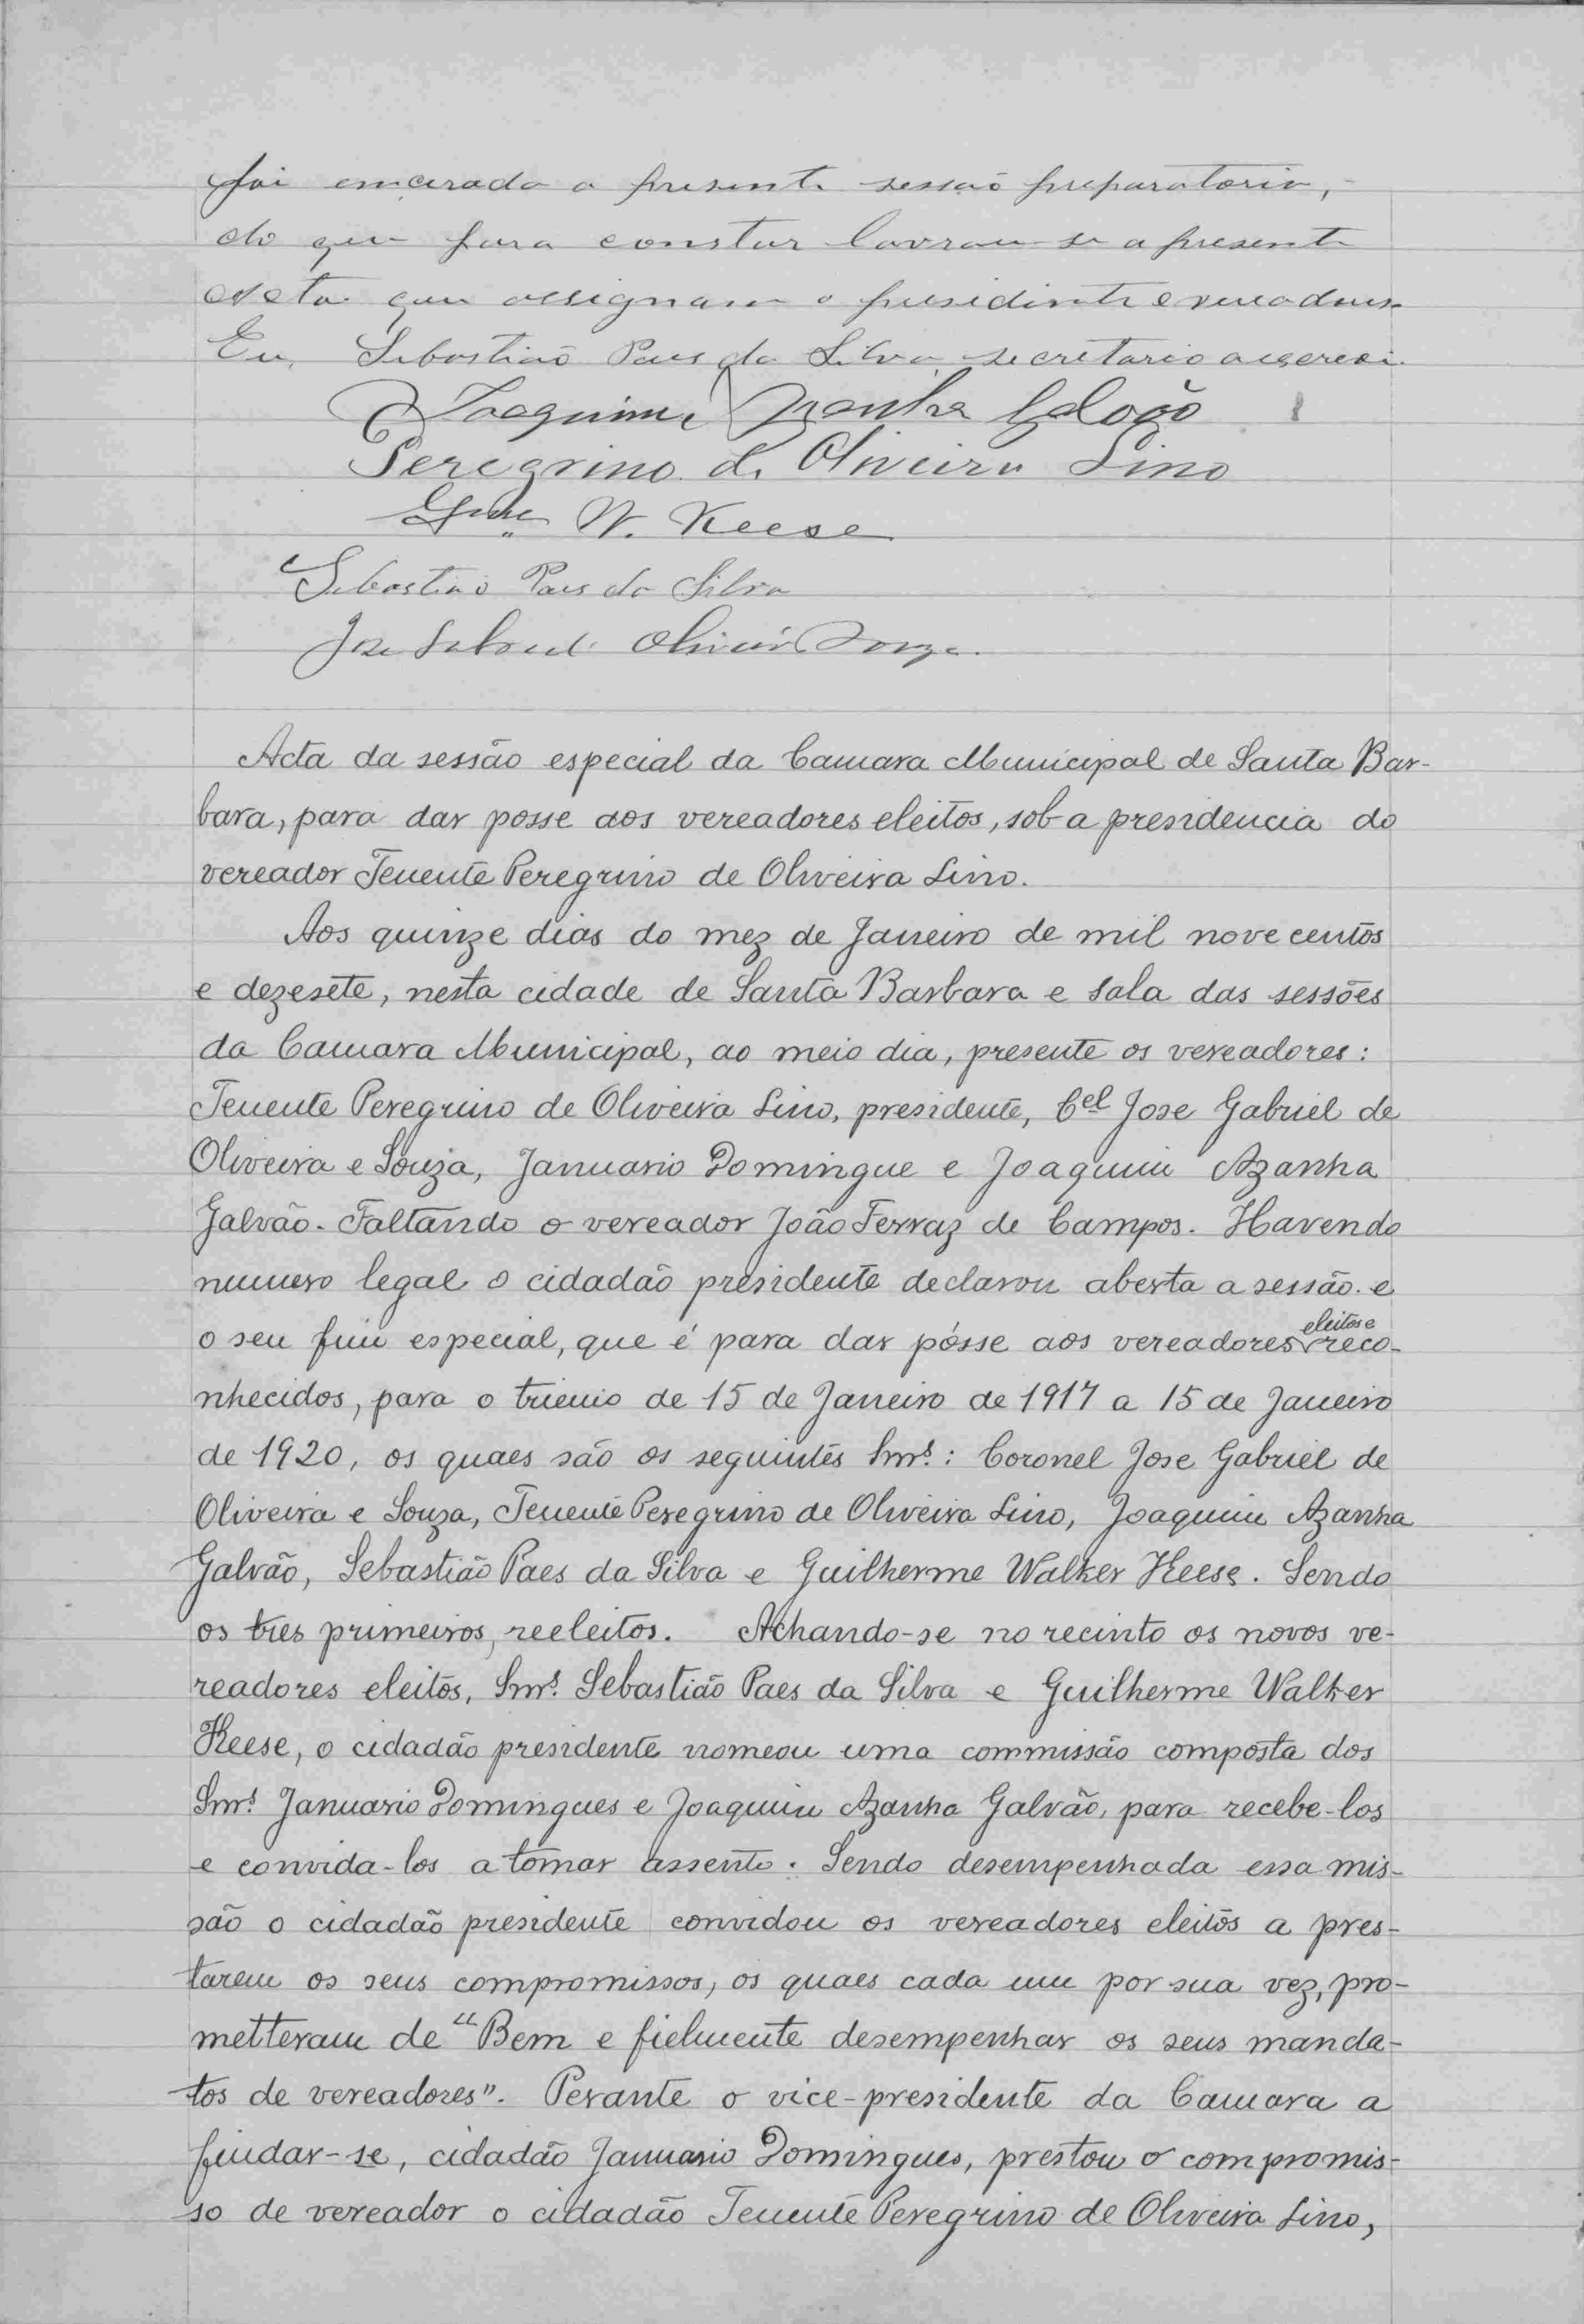 foi encerada a presente sessão preparatoria,
do que para constar lavrou-se a presente
acta que assignam o presidente e vereadores.
Eu, Sebastião Paes da Silva, secretario a escrevi.
Joaquim Azanha Galvão
Peregrino de Oliveira Lino
Guilhe W. Keese
Sebastião Paes da Silva
Jose Gabriel de Oliveira Souza.
Acta da sessão especial da Camara Municipal de Santa Bar-
bara, para dar posse aos vereadores eleitos, sob a presidencia do
vereador Tenente Peregrino de Oliveira Lino.
Aos quinze dias do mez de Janeiro de mil nove centos
e dezesete, nesta cidade de Santa Barbara e sala das sessões
da Camara Municipal, ao meio dia, presente os vereadores:
Tenente Peregrino de Oliveira Lino, presidente, Cel Jose Gabriel de
Oliveira e Souza, Januario Domingue e Joaquim Azanha
Galvão. Faltando o vereador João Ferraz de Campos. Havendo
numero legal o cidadão presidente declarou aberta a sessão e
o seu fim especial, que é para dar pósse aos vereadores eleitos e reco-
nhecidos, para o trienio de 15 de Janeiro de 1917 a 15 de Janeiro
de 1920, os quaes são os seguintes Snrs.: Coronel Jose Gabriel de
Oliveira e Souza, Tenente Peregrino de Oliveira Lino, Joaquim Azanha
Galvão, Sebastião Paes da Silva e Guilherme Walker Keese. Sendo
os tres primeiros, reeleitos. Achando-se no recinto os novos ve-
readores eleitos, Snrs. Sebastião Paes da Silva e Guilherme Walker
Keese, o cidadão presidente nomeou uma commissão composta dos
Snrs. Januario Domingues e Joaquim Azanha Galvão, para recebe-los
e convida-los a tomar assento. Sendo desempenhada essa mis-
são o cidadão presidente convidou os vereadores eleitos a pres-
tarem os seus compromissos, os quaes cada um por sua vez, pro-
metteram de "Bem e fielmente desempenhar os seus manda-
tos de vereadores". Perante o vice-presidente da Camara a
findar-se, cidadão Januario Domingues, prestou o compromis-
so de vereador o cidadão Tenente Peregrino de Oliveira Lino,